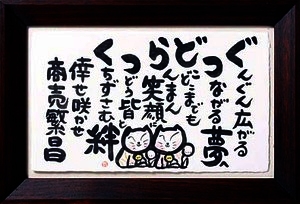 ぐんぐん広がる
つながる夢へ
どこまでも
らんまん笑顔に
つどう皆と
くちずさむ絆
倖せ咲かせ
商売繁昌